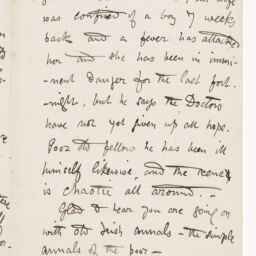 was confined of a boy 7 weeks
back and a fever has attacked
her and she has been in immi-
-nent danger for the last fort-
-night, but he says the Doctors
have not yet given up all hope.
Poor old fellow he has been ill
himself likewise, and the scene
is chaotic all around. -
Glad to hear you are going on
with old Irish annals - the simple
annals of the poor -